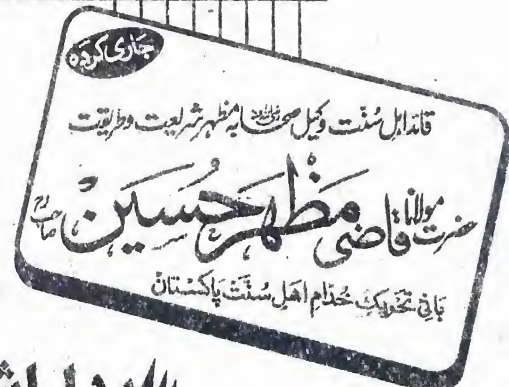 جاری کردہ
قائد اہل سُنّت وکیل صحابہؓ مظہر شریعت و طریقت
حضرت مولانا قاضی مظہر حسین صاحبؒ
بانی تحریک خدام اھل سُنّت پاکستان